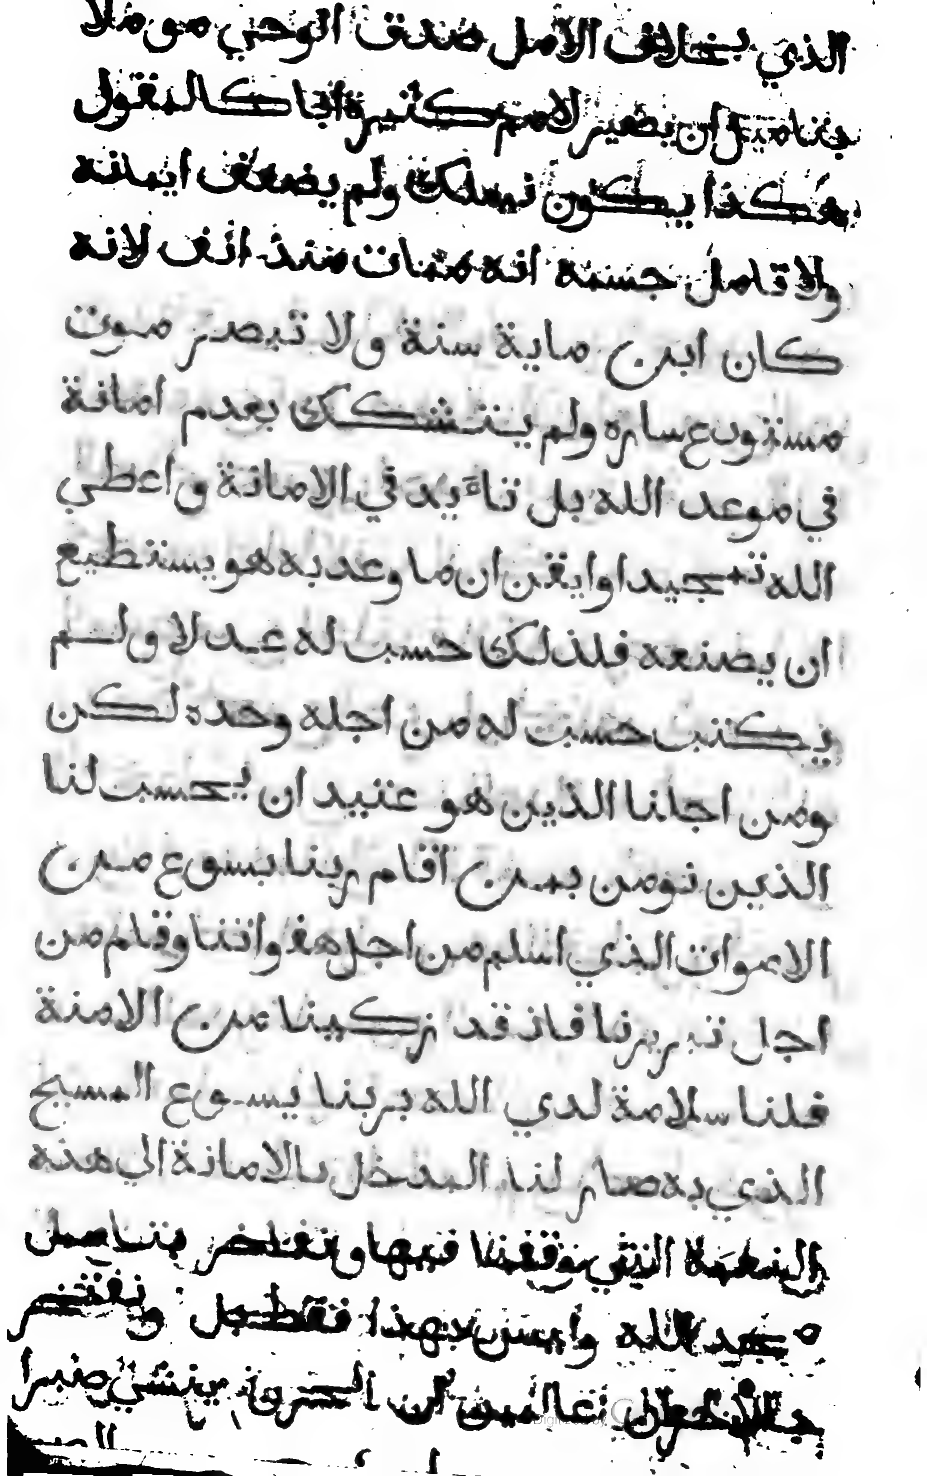 الذي بخلاف الامل صدق الوحي مومملا
بتاميل ان يصير لامم كثيرة ابا كالمقول
هكذا يكون نسلك ولم يضعف ايمانه
ولا تامل جسمه انه ممات منذ انف لانه
كان ابن ماية سنة ولا تبصر موت
مستودع ساره ولم يتشكك بعدم امانة
في موعد الله بل تاءيد في الامانة واعطي
الله تمجيدا وايقن ان ما وعد به هو يستطيع
ان يصنعه فلذلك حسب له عدلا ولم
يكتب حسب له من اجله وحده لكن
ومن اجلنا الذين هو عتيد ان يحسب لنا
الذين نومن بمن اقام ربنا يسوع من
الاموات الذي اسلم من اجل هفواتنا وقام من
اجل تبريرنا فاذ قد زكينا من الامنة
فلنا سلامة لدي الله بربنا يسوع المسيح
الذي به صار لنا المدخل بالامانة الي هذه
النعمة التي توقفنا فيها ونفتخر بتاميل
مجد الله وليس بهذا فقط بل ونفتخر
بالاحزان عالمين ان الحزن ينشي صبرا